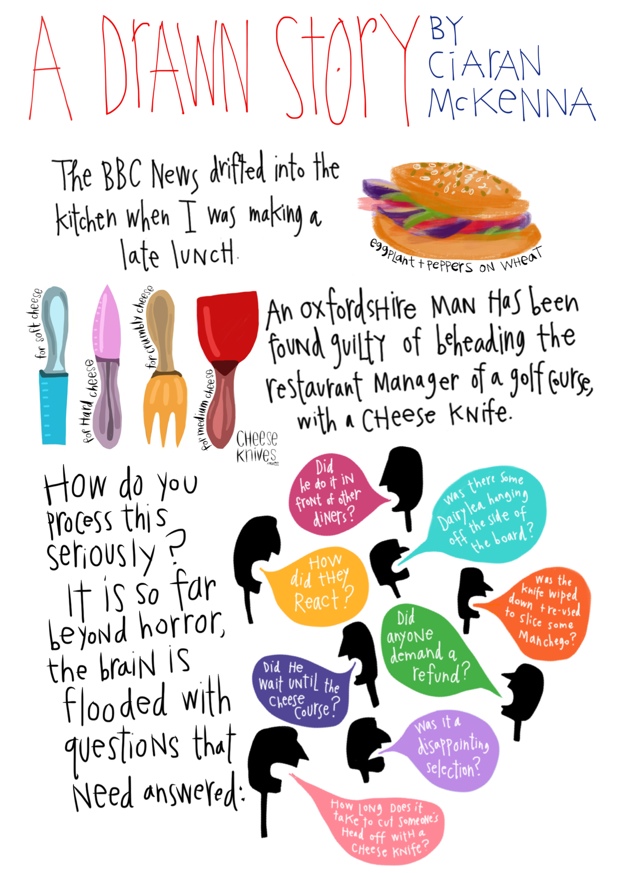 A DRAWN STORY
BY
CIARAN
McKENNA
The BBC News drifted into the
kitchen when I was making a
late lunch.
eggplant + peppers on wheat
for soft cheese
for Hard cheese
for crumbly cheese
for medium cheese
CHEESE
KNIVES
An Oxfordshire man has been
found guilty of beheading the
restaurant Manager of a golf course,
with a CHEESE KNIFE.
How do you
process this
seriously?
It is so far
beyond horror,
the brain is
flooded with
questions that
need answered:
Did
he do it in
front of other
diners?
Was there some
Dairylea hanging
off the side of
the board?
How
did they
React?
Was the
knife wiped
down + re-used
to slice some
Manchego?
Did
anyone
demand a
refund?
Did He
wait until the
cheese
course?
Was it a
disappointing
selection?
How long does it
take to cut someone's
Head off with a
cheese knife?